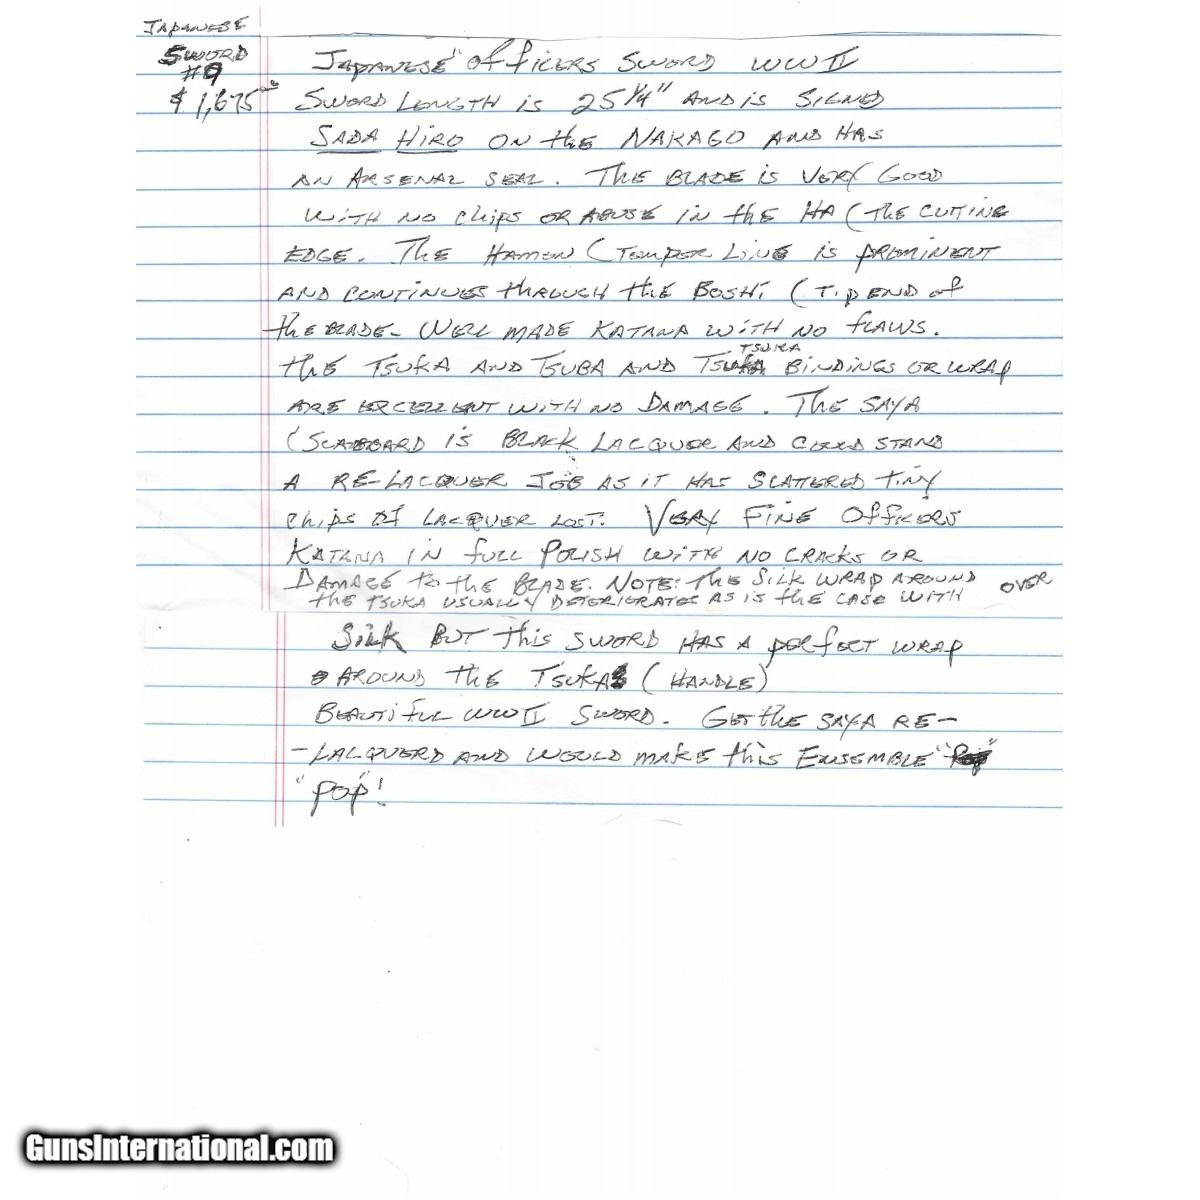 JAPANESE
SWORD
#9
$1,675⁰⁰
JAPANESE OFFICERS SWORD WWII
SWORD LENGTH IS 25 1/4" AND IS SIGNED
SADA HIRO ON the NAKAGO AND HAS
AN ARSENAL SEAL. THE BLADE IS VERY GOOD
WITH NO CHIPS OR ABUSE IN the HA (THE CUTTING
EDGE. THE HAMON (TEMPER LINE IS PROMINENT
AND CONTINUES THROUGH THE BOSHI (TIP END of
the BLADE- WELL MADE KATANA WITH NO FLAWS.
TSUKA
the TSUKA AND TSUBA AND BINDINGS OR WRAP
ARE EXCELLENT WITH NO DAMAGE. THE SAYA
(SCABBARD IS BLACK LACQUER AND COULD STAND
A RE-LACQUER JOB AS IT HAS SCATTERED TINY
CHIPS OF LACQUER LOST. VERY FINE OFFICERS
KATANA IN FULL POLISH WITH NO CRACKS OR
DAMAGE to the BLADE. NOTE: THE SILK WRAP AROUND
the TSUKA USUALLY DETERIORATES AS IS the CASE WITH OVER
SILK BUT this SWORD HAS A PERFECT WRAP
AROUND the TSUKA (HANDLE)
BEAUTIFUL WWII SWORD. GET the SAYA RE-
-LACQUERD AND WOULD MAKE this ENSEMBLE
"POP"!
GunsInternational.com